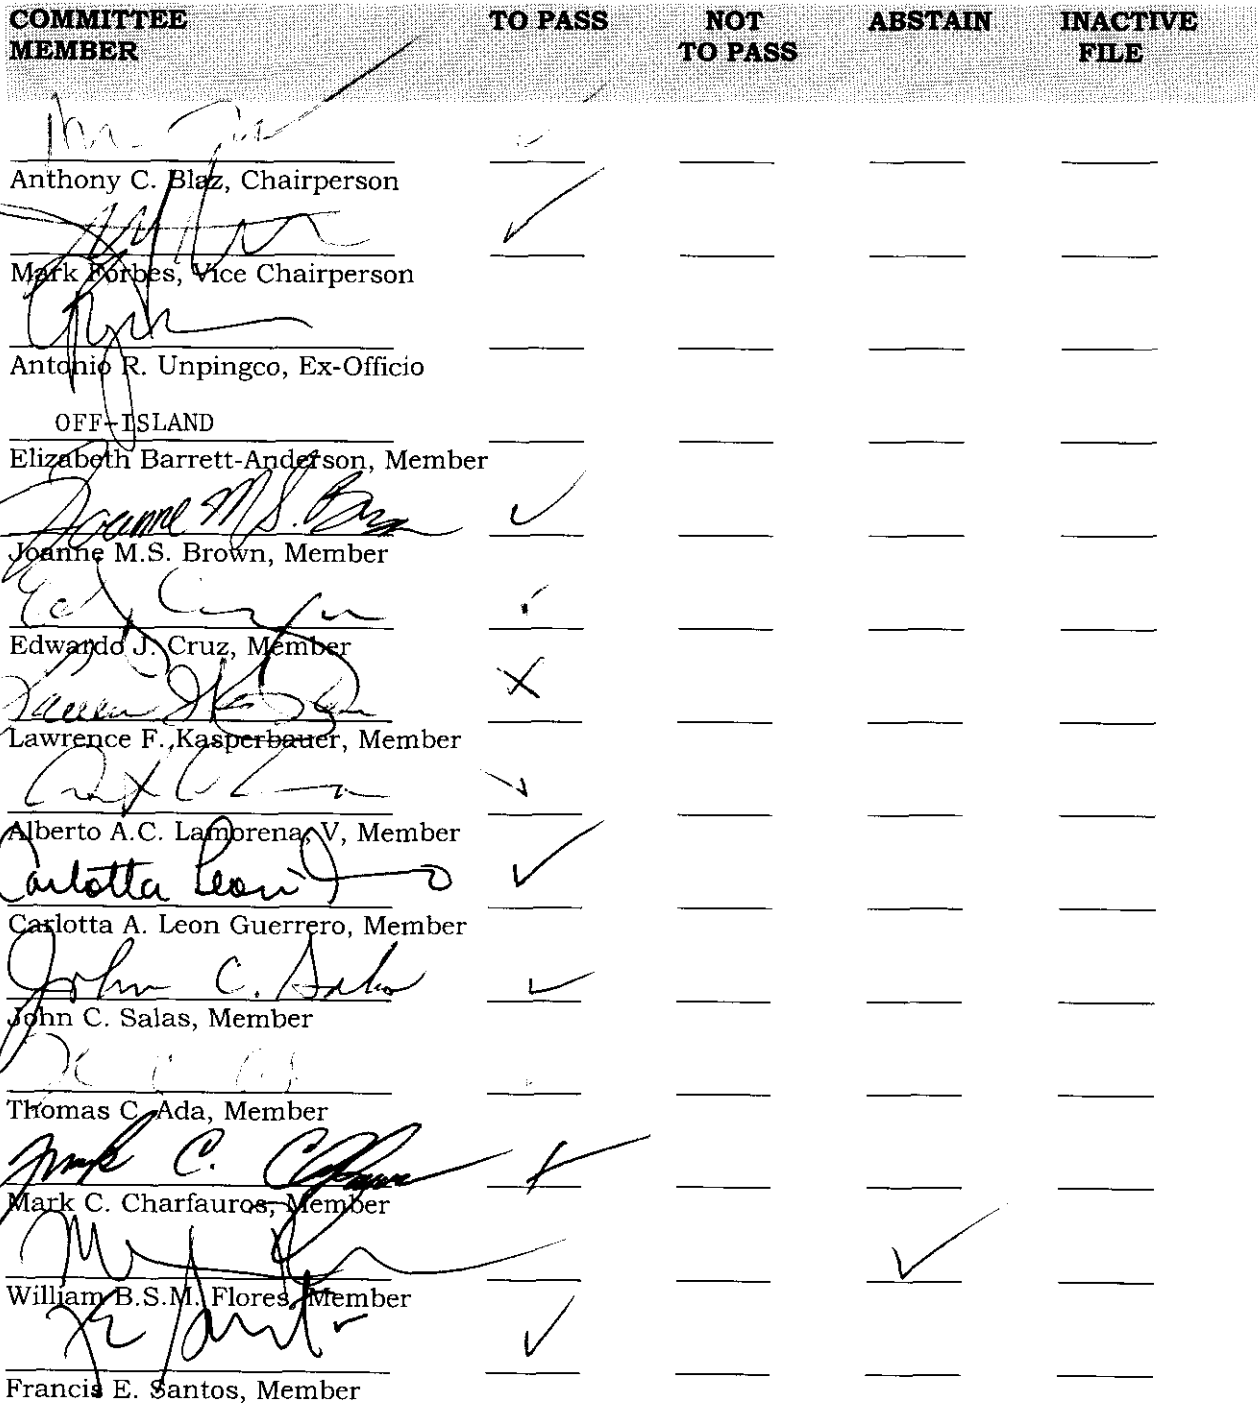 COMMITTEE MEMBER TO PASS NOT TO PASS ABSTAIN INACTIVE FILE
Anthony C. Blaz, Chairperson
Mark Forbes, Vice Chairperson
Antonio R. Unpingco, Ex-Officio
OFF-ISLAND
Elizabeth Barrett-Anderson, Member
Joanne M.S. Brown
Joanne M.S. Brown, Member
Edwardo J. Cruz, Member
Lawrence F. Kasperbauer, Member
Alberto A.C. Lamorena, V, Member
Carlotta Leon
Carlotta A. Leon Guerrero, Member
John C. Salas
John C. Salas, Member
Thomas C. Ada, Member
Mark C.
Mark C. Charfauros, Member
William B.S.M. Flores, Member
Francis E. Santos, Member